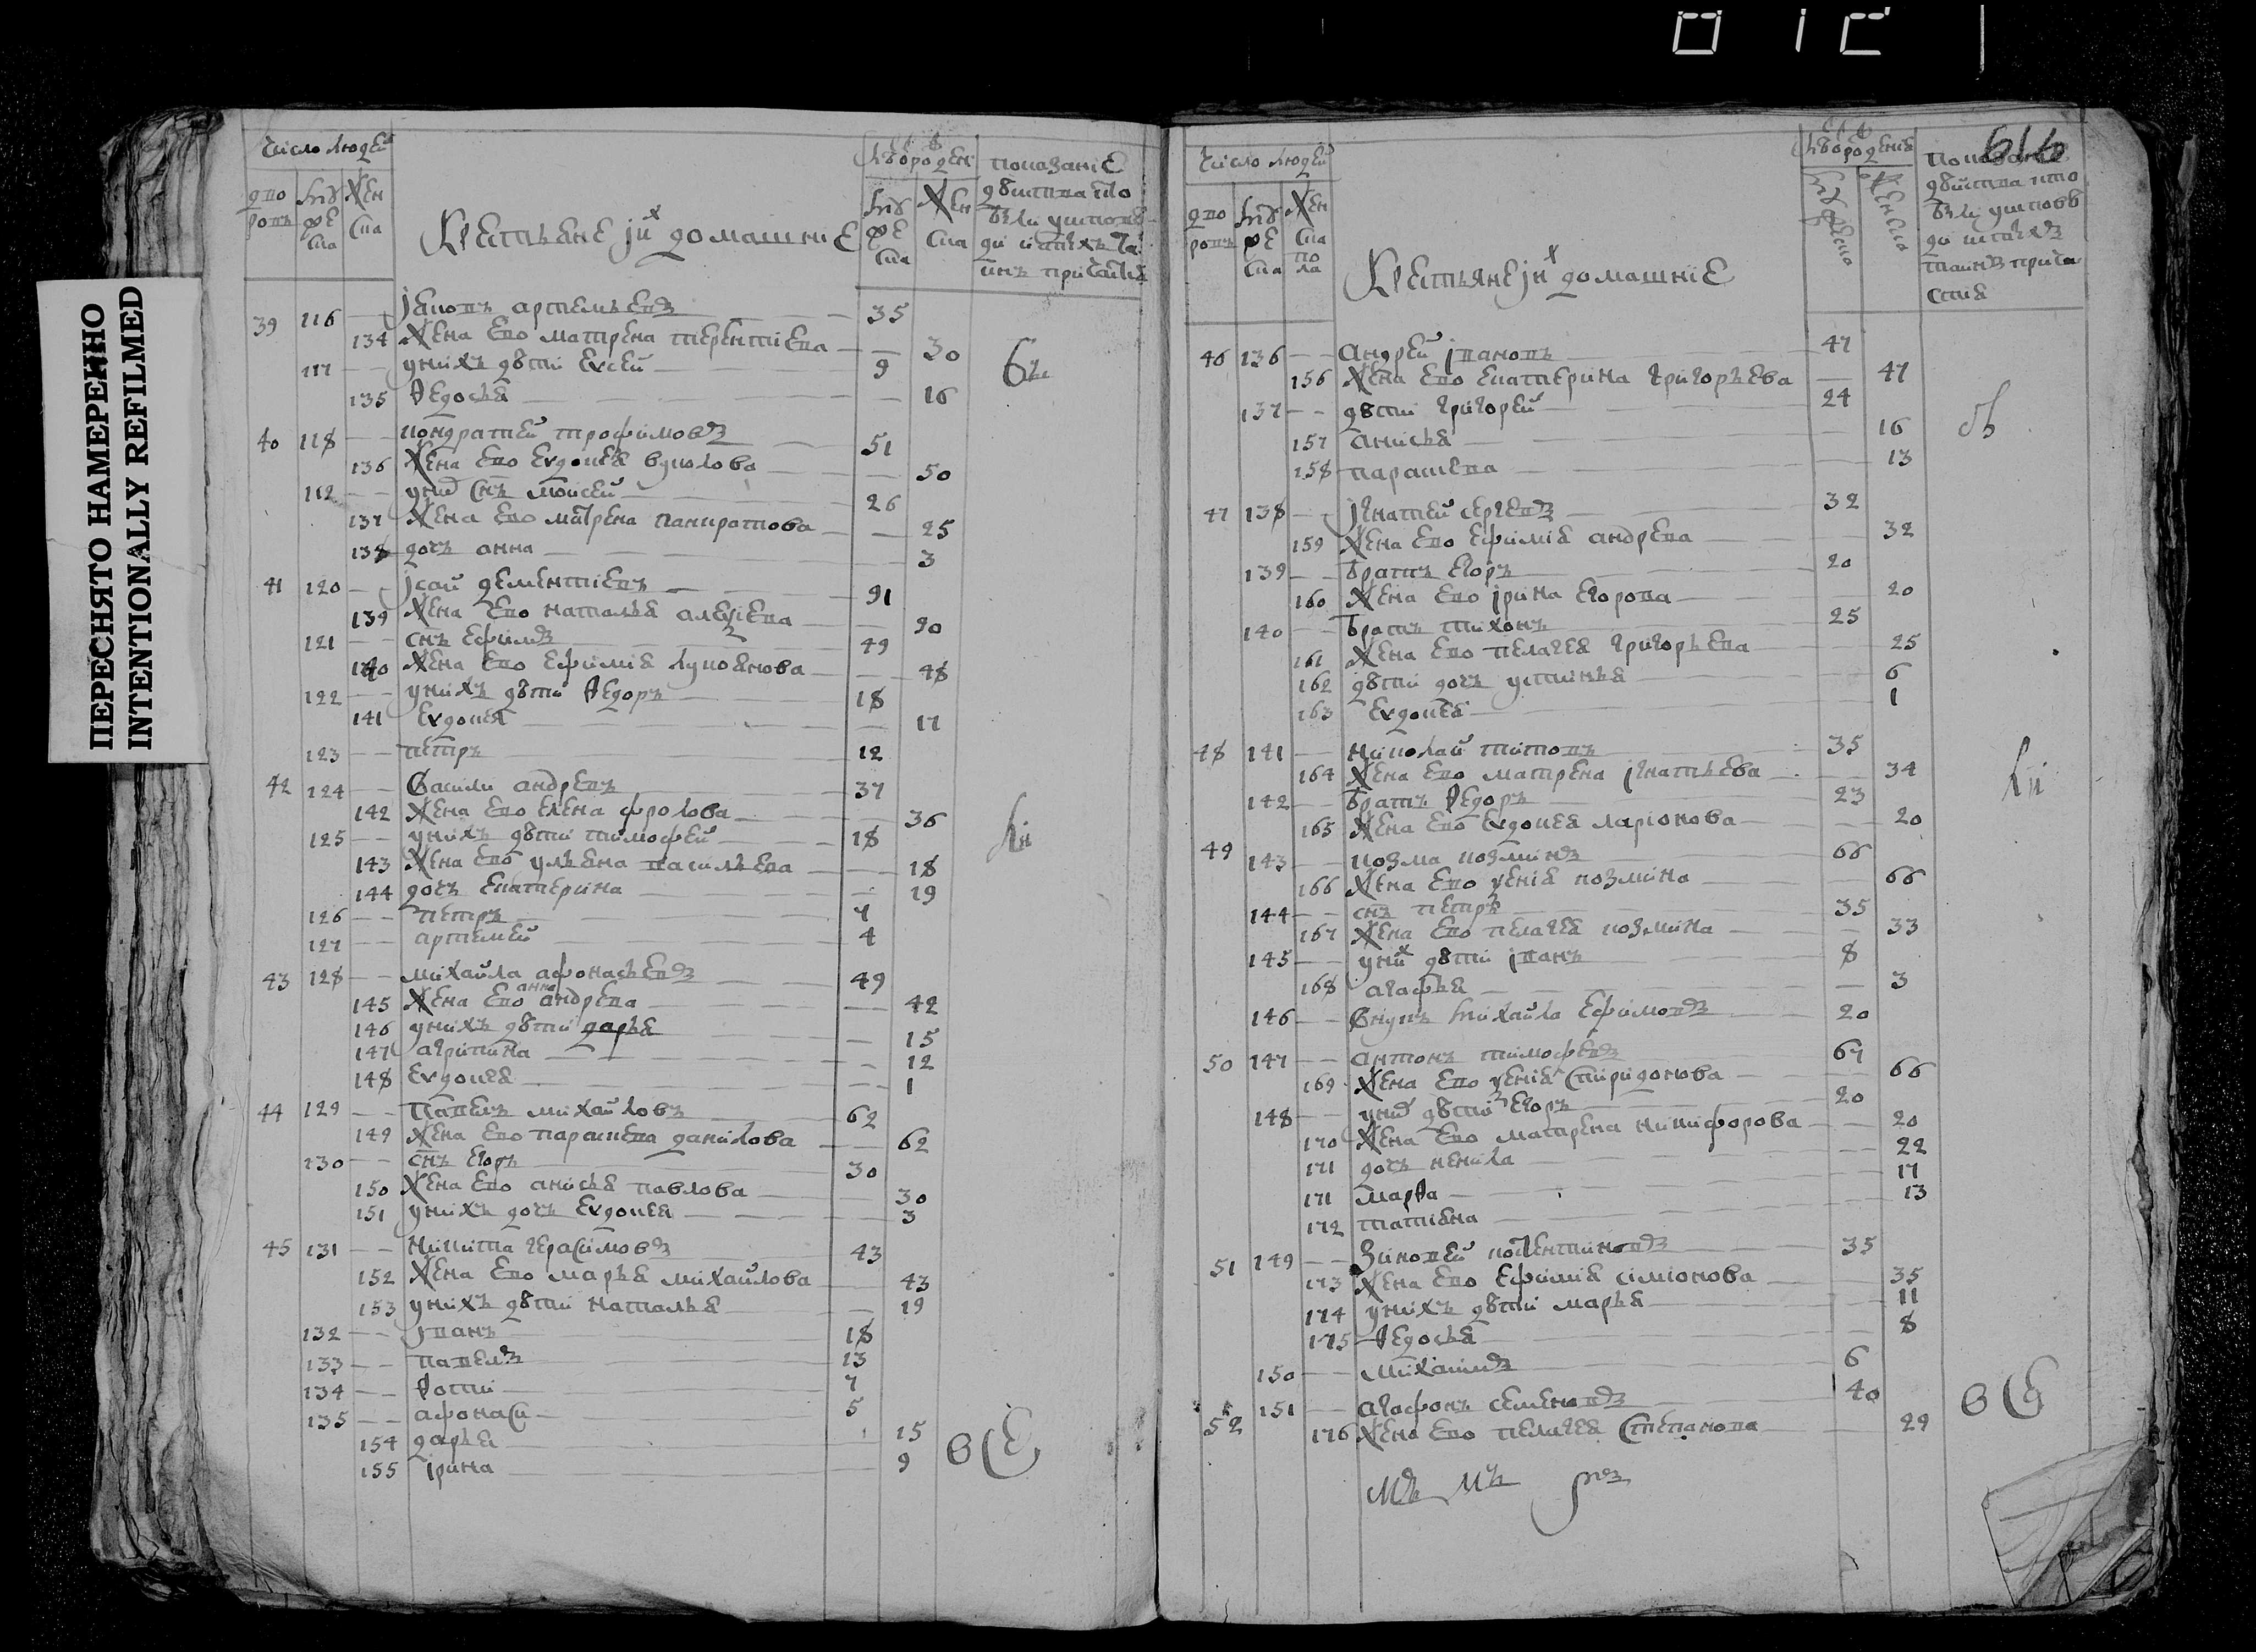 012
ПЕРЕСНЯТО НАМЕРЕННО
INTENTIONALLY REFILMED
Число людей
дво ровъ
мужеска
женска
Крестьяне и их домашние
От рождения
мужеска
женска
показание
39 116 — Яковъ артемьевъ 35
134 жена ево матрена терентиева — 30
117 — у нихъ дѣти Евсей 9
135 Ѳедосья — 16
40 118 — кондратей трофимовъ 51
136 жена ево Евдокея вуколова — 50
112 — у них снъ моисей 26
137 жена ево матрена панкратова — 25
138 дочь анна — 3
41 120 — Исай дементиевъ 91
139 жена ево наталья алексиева — 90
121 — снъ Ефимъ 49
140 жена ево Ефимия лукоянова — 48
122 — у нихъ дѣти Ѳедоръ 18
141 Евдокея — 17
123 — петръ 12
42 124 — Василей андревъ 37
142 жена ево Елена фролова — 36
125 — у нихъ дѣти тимофей 18
143 жена ево ульяна васильева — 18
144 дочь Екатерина — 19
126 — петръ 7
127 — артемей 4
43 128 — михайла афонасьевъ 49
145 жена ево анна андрева — 42
146 у нихъ дѣти дарья — 15
147 агрипина — 12
148 Евдокея — 1
44 129 — павелъ михайловъ 62
149 жена ево парасковья данилова — 62
130 — снъ Егоръ 30
150 жена ево анисья павлова — 30
151 у нихъ дочь Евдокея — 3
45 131 — никита герасимовъ 43
152 жена ево марья михайлова — 43
153 у нихъ дѣти наталья — 19
132 — Иванъ 18
133 — павелъ 13
134 — Ѳотий 7
135 — афонаси 5
154 дарья 15
155 ирина — 9
616
Число людей
дво ровъ
мужеска
женска пола
Крестьяне и их домашние
От рождения
мужеска
женска
46 136 — андрей ивановъ 47
156 жена ево Екатерина григорьева — 47
137 — дѣти григорей 24
157 анисья — 16
158 парасковья — 13
47 138 — Игнатей сергевъ 32
159 жена ево Ефимия андрева — 32
139 — братъ Егоръ 20
160 жена ево ирина Егорова — 20
140 — братъ тихонъ 25
161 жена ево пелагея григорьева — 25
162 дѣти дочь устинья — 6
163 Евдокея — 1
48 141 — николай титовъ 35
164 жена ево матрена игнатьева — 34
142 — братъ Ѳедоръ 23
165 жена ево Евдокея ларионова — 20
49 143 — козма козминъ 66
166 жена ево ксения козмина — 66
144 — снъ петръ 35
167 жена ево пелагея козмина — 33
145 — у них дѣти иванъ 8
168 агафья — 3
146 — внукъ михайла Ефимовъ 20
50 147 — антонъ тимофѣевъ 67
169 жена ево ксения спиридонова — 66
148 — у них дѣти Егоръ 20
170 жена ево матрена никифорова — 20
171 дочь ненила — 22
171 марѲа — 17
172 татияна — 13
51 149 — Зиновей 35
173 жена ево Ефимия симионова — 35
174 у нихъ дѣти марья — 11
175 Ѳедосья — 8
150 — михаилъ 6
52 151 — агафонъ семеновъ 40
176 жена ево пелагея степанова — 29